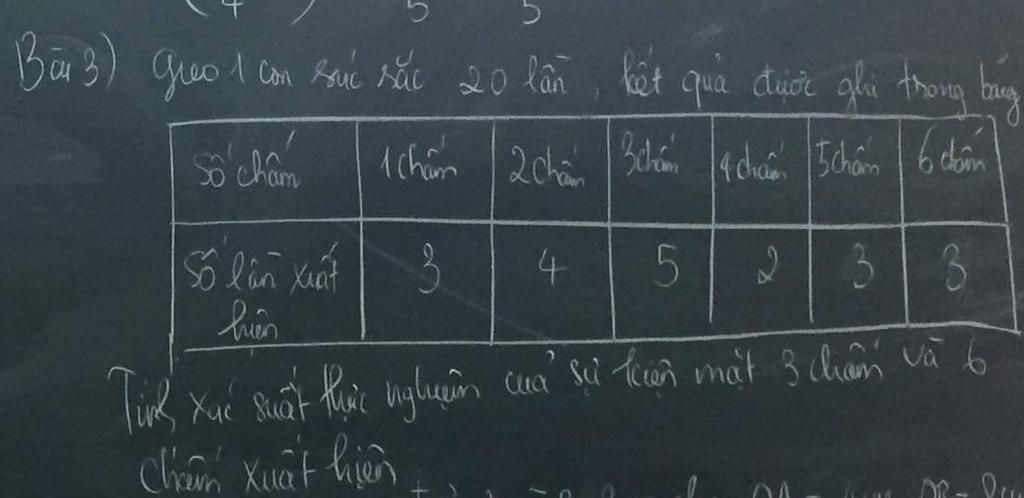 Bài 3) Gieo 1 con xúc sắc 20 lần, kết quả được ghi trong bảng
Số chấm 1 chấm 2 chấm 3 chấm 4 chấm 5 chấm 6 chấm
Số lần xuất 3 4 5 2 3 3
hiện
Tính xác suất thực nghiệm của sự kiện mặt 3 chấm và 6
chấm xuất hiện